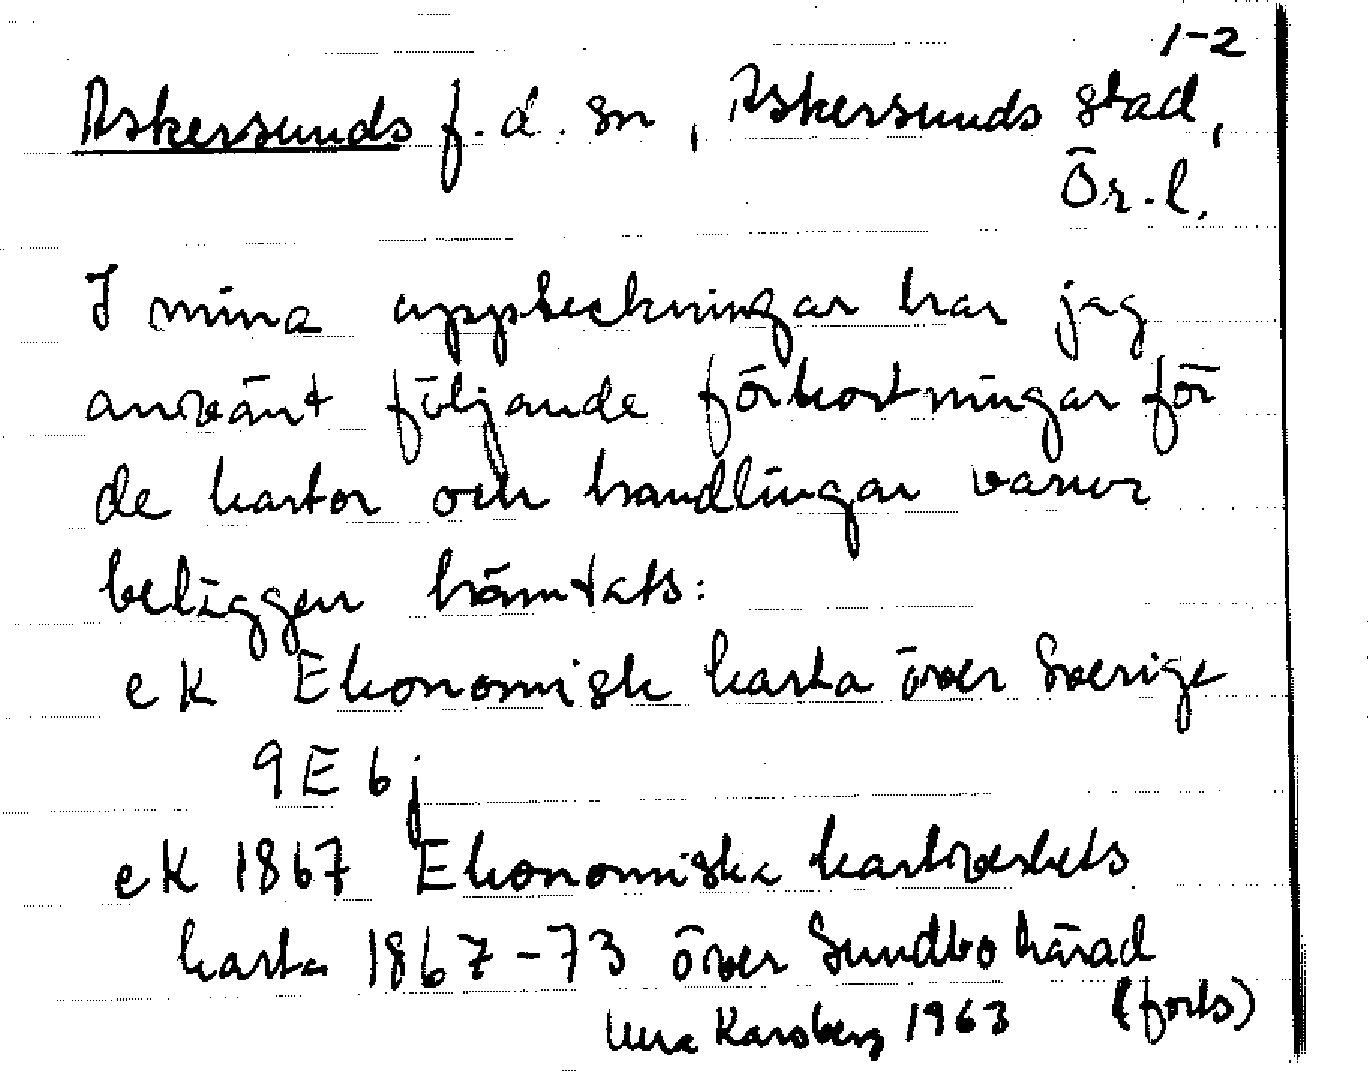 1-2
Askersunds f.d. sn, Askersunds stad,
Ör.l.
I mina uppteckningar har jag
använt följande förkortningar för
de kartor och handlingar varur
beläggen hämtats:
eK Ekonomisk karta över Sverige
9E6j
eK 1867 Ekonomiska kartverkets
karta 1867-73 över Sundbo härad
(forts)
Karsberg 1963